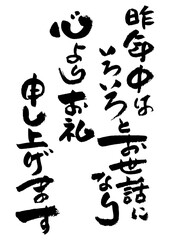 昨年中は
いろいろとお世話に
なり
心よりお礼
申し上げます